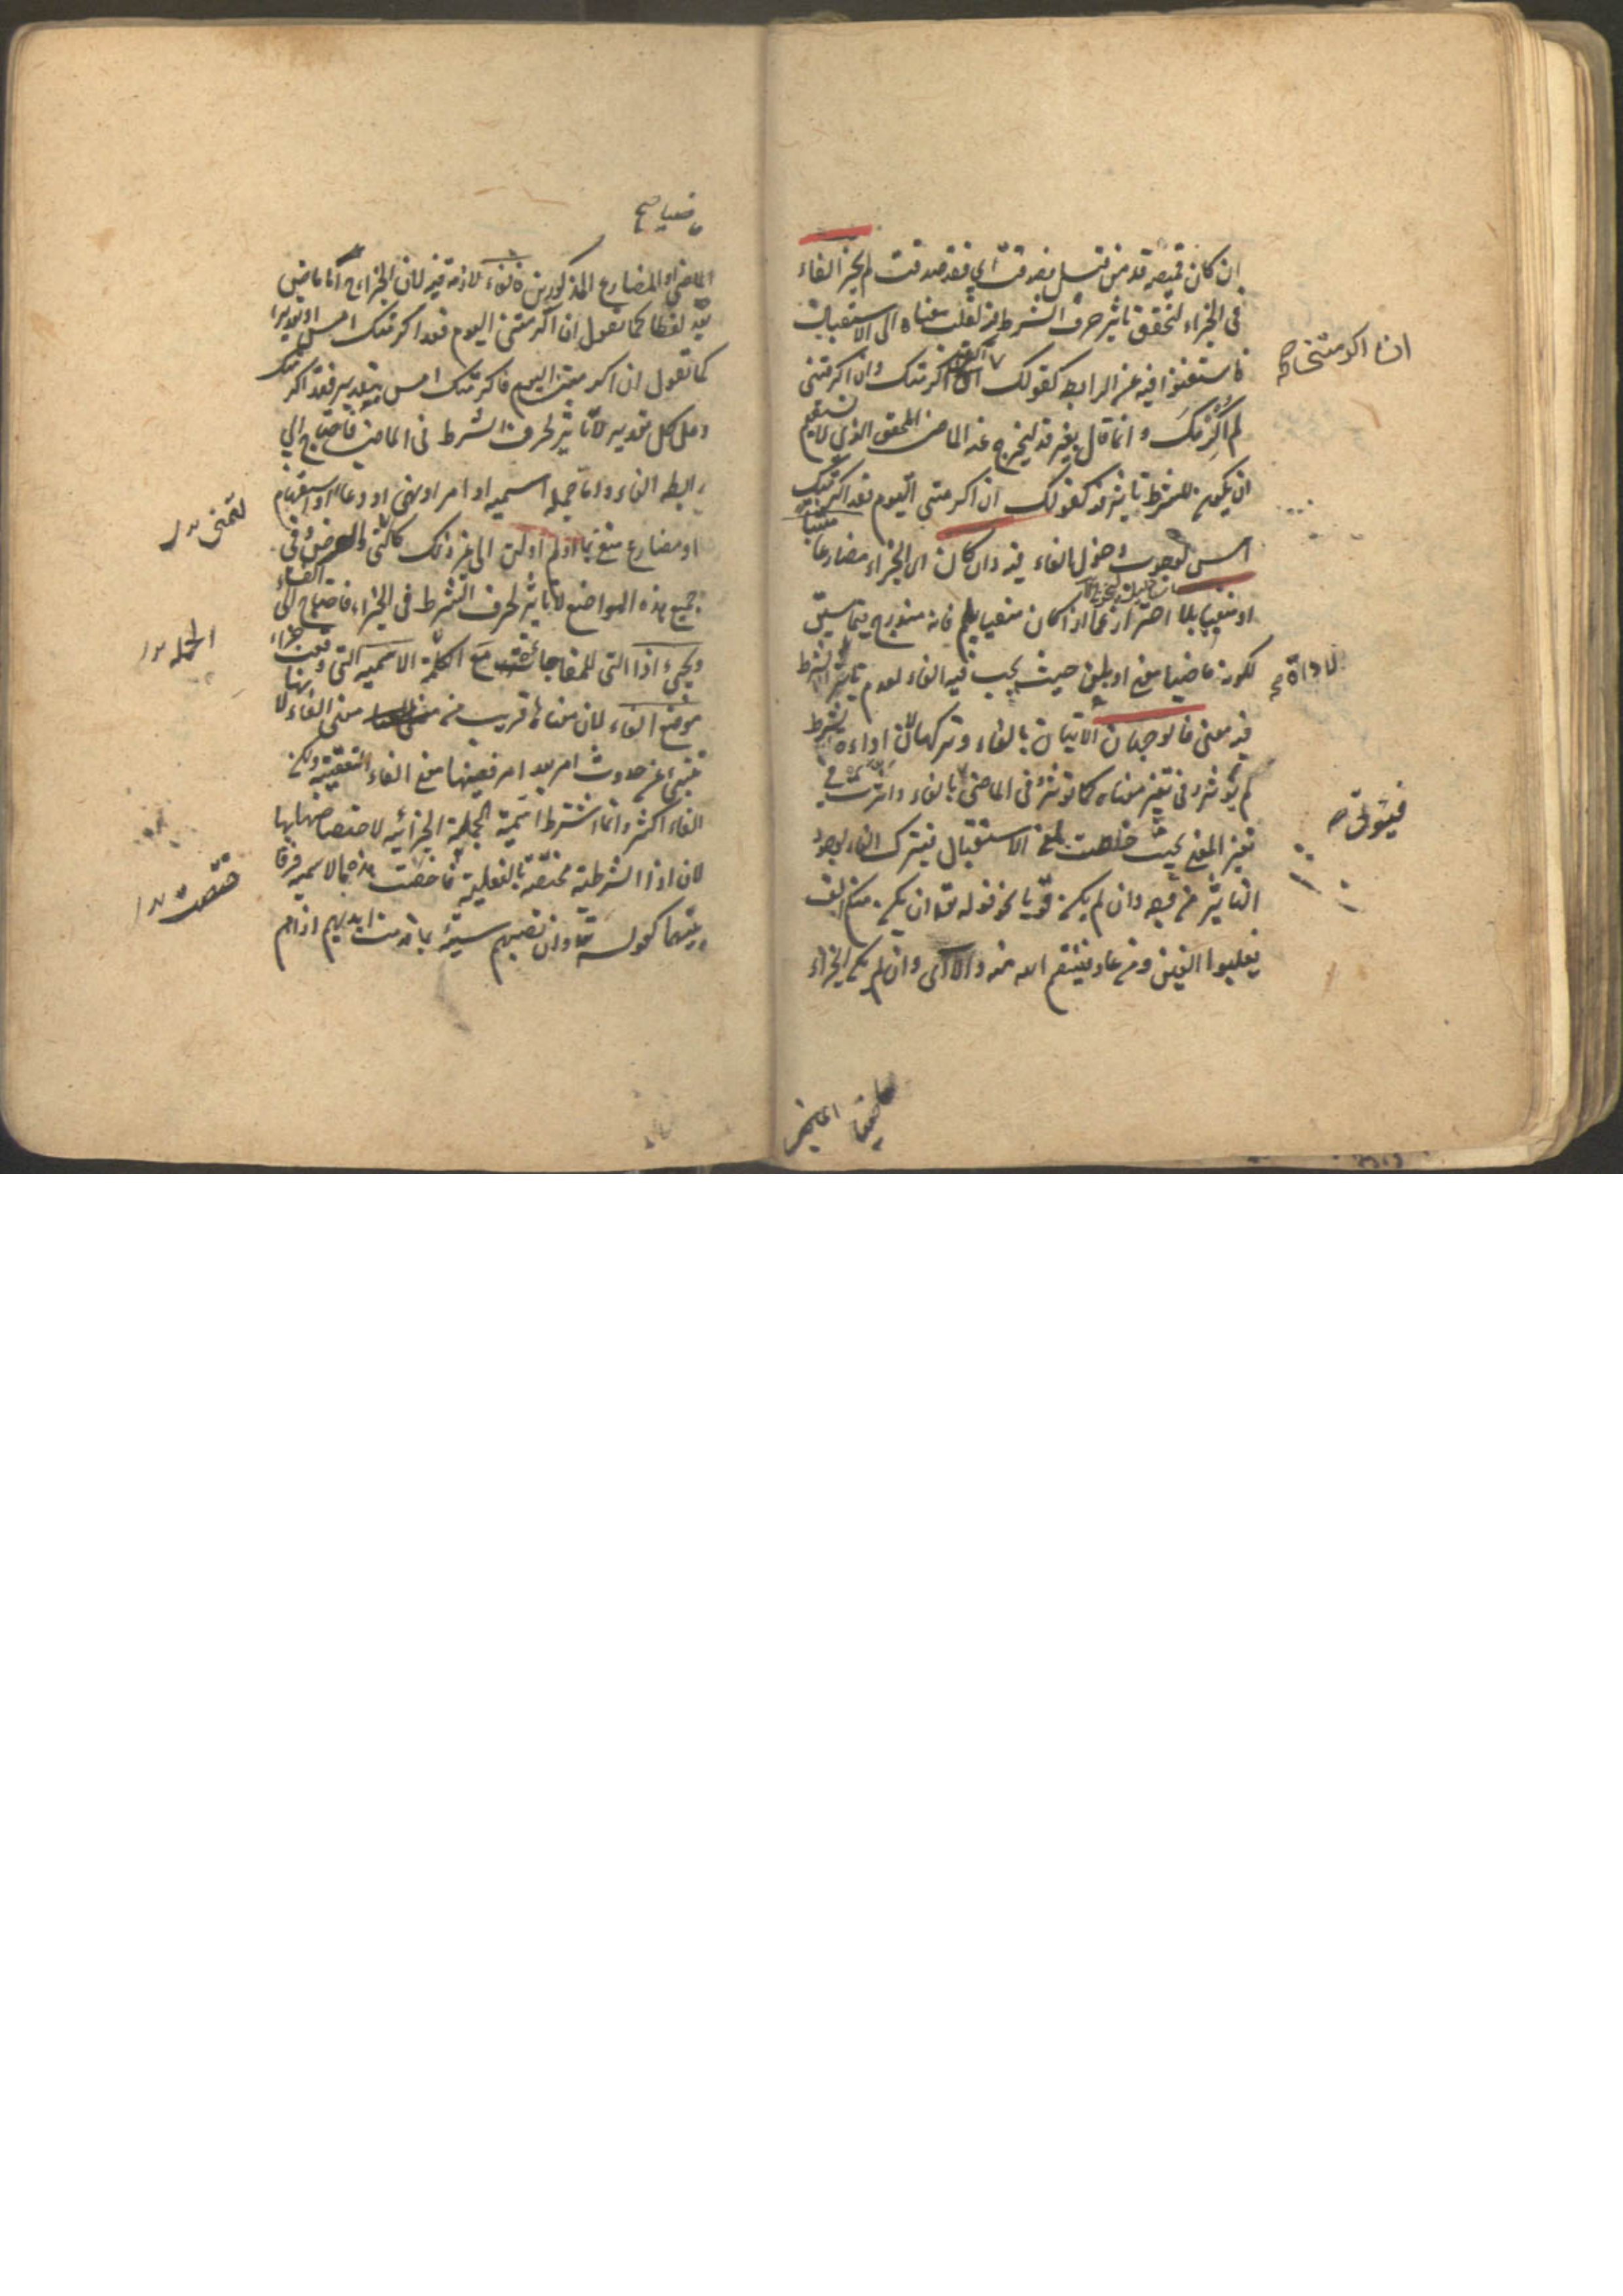 ان كان قميصه قد من قبل فصدقت اي فقد صدقت لم يجز الفاء
في الجزاء لتحقق تاثير حرف الشرط فيه لقلب معناه الى الاستقبال
فاستغنوا فيه عن الرابط كقولك ان اكرمتني اكرمتك وان اكرمتني
ان اكرمتني صح
لم اكرمك وانما قال بغير قد ليخرج عنه الماضي المحقق الذي لا يستقيم
ان يكون للشرط تاثير فيه كقولك ان اكرمتني اليوم فقد اكرمتك
امس لوجوب دخول الفاء فيه وان كان اي الجزاء مضارعا مثبتا
او منفيا بلا احتراز عما اذا كان منفيا بلم فانه مندرج فيما سبق
لكونه ماضيا معنى او بلن حيث يجب فيه الفاء لعدم تاثير الشرط
فيه معنى فالوجهان الاتيان بالفاء وتركها لان اداة الشرط
لم تؤثر في تغير معناه كما تؤثر في الماضي بالفاء واثرت في
تغير المعنى حيث خلصت لمعنى الاستقبال فيترك الفاء لوجود
التاثير من وجه وان لم يكن قويا نحو قوله تعالى ان يكن منكم الف
يغلبوا الفين ومن عاد فينتقم الله منه والا اي وان لم يكن الجزاء
الماضي او المضارع المذكورين فالفاء لازمة فيه لان الجزاء ح اما ماضي
بقد لفظا كما تقول ان اكرمتني اليوم فقد اكرمتك امس او تقديرا
كما تقول ان اكرمتني اليوم فاكرمتك امس بتقدير فقد اكرمتك
وعلى كل تقدير لا تاثير لحرف الشرط في الماضي فاحتاج الى
رابطه الفاء واما جمله اسميه او امر او نهي او دعاء او استفهام
او مضارع منفي بما او لم او لن الى غير ذلك كالتمني والعرض وفي
جميع هذه المواضع لا تاثير لحرف الشرط في الجزاء فاحتاج الى الفاء
ويجيء اذا التي للمفاجاة مع الجملة الاسميه التي وقعت جزاء
موضع الفاء لان معناها قريب من معنى الفاء لانها
تنبئ عن حدوث امر بعد امر ففيها معنى الفاء التعقيبية ولكن
الفاء اكثر وانما اشترط اسمية الجملة الجزائية لاختصاصها بها
لان اذا الشرطية مختصة بالفعلية فاختصت هذه بالاسمية فرقا
بينهما كقوله تعالى وان تصبهم سيئة بما قدمت ايديهم اذا هم